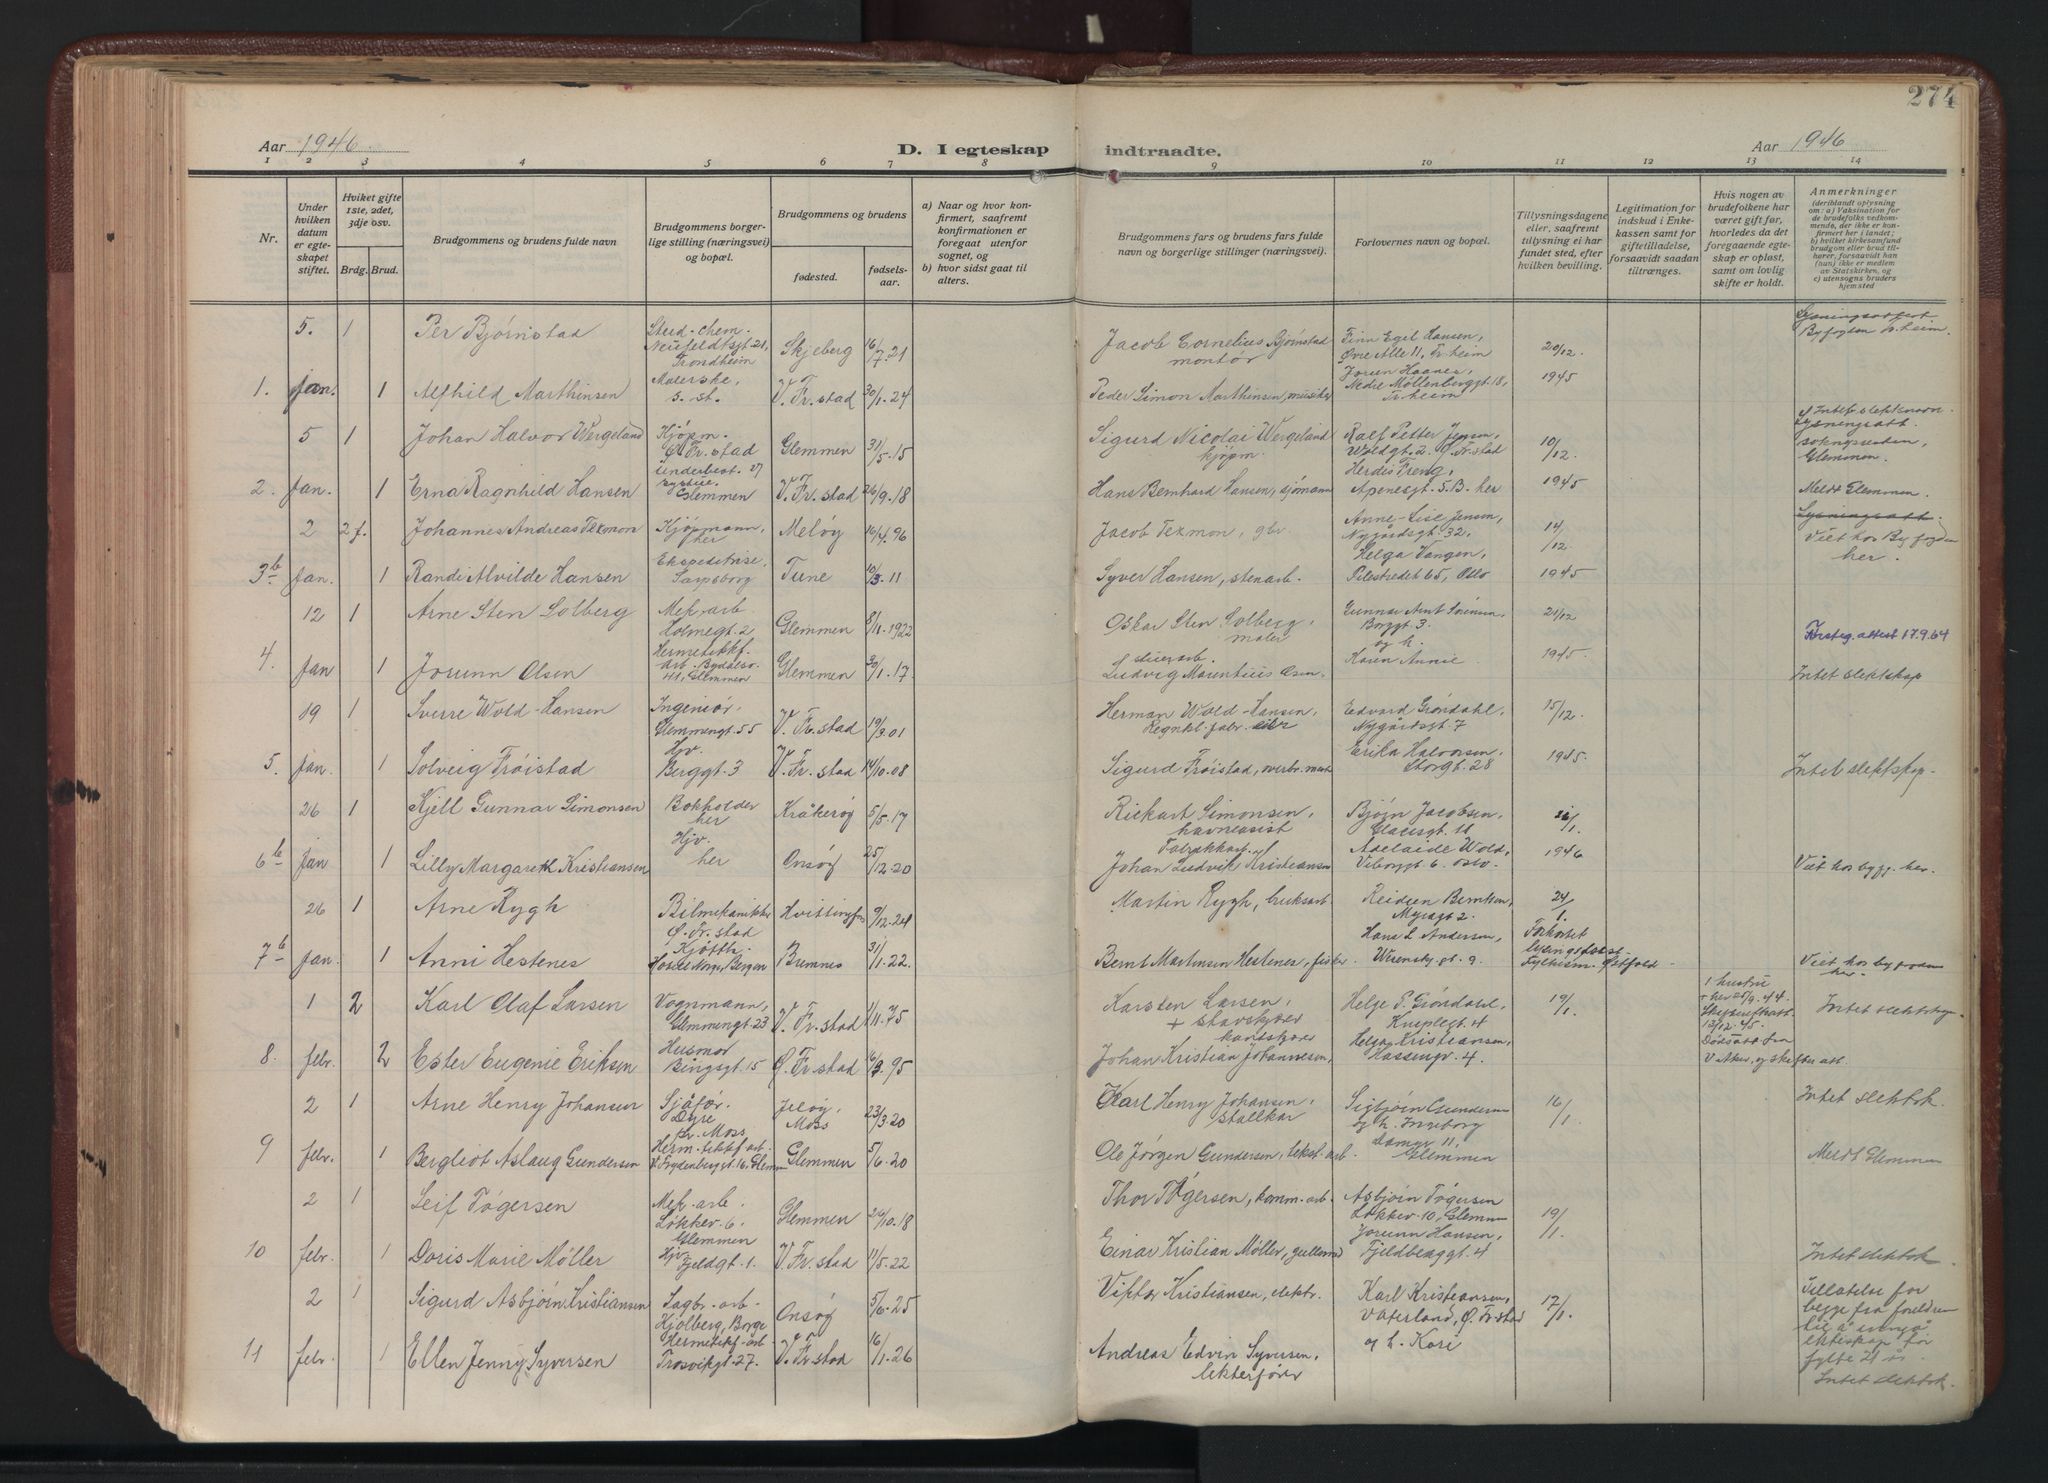 274
Aar 1946
D. I egteskap indtraadte.
Aar 1946
1 2 3 4 5 6 7 8 9 10 11 12 13 14
Nr.
Under hvilken datum er egteskapet stiftet.
Hviket gifte 1ste, 2det, 3dje osv.
Brdg. Brud.
Brudgommens og brudens fulde navn
Brudgommens borgerlige stilling (næringsvei) og bopæl.
Brudgommens og brudens
fødested.
fødselsaar.
a) Naar og hvor konfirmert, saafremt konfirmationen er foregaat utenfor sognet, og
b) hvor sidst gaat til alters.
Brudgommens fars og brudens fars fulde navn og borgerlige stillinger (næringsvei).
Forlovernes navn og bopæl.
Tillysningsdagene eller, saafremt tillysning ei har fundet sted, efter hvilken bevilling.
Legitimation for indskud i Enkekassen samt for giftetilladelse, forsaavidt saadan tiltrænges.
Hvis nogen av brudefolkene har været gift før, hvorledes da det foregaaende egteskap er opløst, samt om lovlig skifte er holdt.
Anmerkninger
(deriblandt oplysning om: a) Vaksination for de brudefolks vedkommende, der ikke er konfirmert her i landet; b) hvilket kirkesamfund brudgom eller brud tilhører, forsaavidt han (hun) ikke er medlem av Statskirken, og c) utensogns bruders hjemsted
5. 1 Per Bjørnstad Stud. chem. Neufeldtsgt. 21, Trondheim Skjeberg 16/7.21 Jacob Cornelius Bjørnstad montør Finn Egel Hansen, Øvre Alle 11, Tr.heim 20/12. Byfogden Tr.heim.
1. Jan. 1 Alfhild Marthinsen Malerske, s. st. V. Fr.stad 30/1.24 Peder Simon Marthinsen, musiker Jorun Haanes, Nedre Møllenberggt. 18, Tr.heim 1945
5 1 Johan Halvor Wergeland Kjøpm. Ø. Fr.stad Glemmen 31/5.15 Sigurd Nicolai Wergeland kjøpm. Ralf Petter Jensen, Woldgt. 2. Ø. Fr.stad 10/12. Intet slektnavn. Lysningsatt. Glemmen.
2. Jan. 1 Erna Ragnhild Hansen Glemmen V. Fr.stad 26/9.18 Hans Bernhard Hansen, sjømann Herdis Freng, Apenesgt. 5.B. her 1945 Meldt Glemmen.
2 2 f. Johannes Andreas Texmon Kjøpmann, her Meløy 16/4.96 Jacob Texmon, gbr. Anne-Lise Jensen, Nygårdsgt. 32, 14/12 Lysningsatt. Viet hos Byfogden her.
3b Jan. 1 Randi Alvilde Hansen Ekspeditrise, Sarpsborg Tune 10/3.11 Syver Hansen, stenarb. Helga Vangen, Pilestredet 65, Oslo 1945
12 1 Arne Sten Solberg Mek. arb. Holmegt. 2 Glemmen 8/11.1922 Oskar Sten Solberg, maler Gunnar Arnt Sørensen, Borggt. 3. og h. 21/12 attest 17.9.64
4. Jan 1 Jorunn Olsen Hermetikkf. arb. 41, Glemmen Glemmen 30/1.17 Ludvig Marentius Olsen, stuerarb. Karen Annie 1945. Intet slektskap
19 1 Sverre Wold-Hansen Ingeniør, Glemmengt. 55 V. Fr.stad 19/3.01 Herman Wold-Hansen, Edvard Grøndahl, Nygårdsgt. 7 15/12.
5. Jan. 1 Solveig Trøistad Hjv. Berggt. 3 V. Fr.stad 14/10.08 Sigurd Trøistad, Erika Halvorsen, Storgt. 28 1945. Intet slektskap.
26 1 Kjell Gunnar Simonsen Bokholder her Kråkerøy 5/5.17 Rickart Simonsen, havneasist Bjørn Jacobsen, Glacisgt. 11 /1.
6b Jan 1 Lilly Margareth Kristiansen Hjv. her Onsøy 25/12.20 Johan Ludvik Kristiansen Adelaide Wold, Viborggt. 6. Oslo. 1946 Viet hos byfg. her.
26 1 Arne Rygh Bilmekaniker Ø. Fr.stad Hvittingfos 9/12.24 Martin Rygh, bruksarb. Reidun Berntsen, Myragt 2. 24/1.
7b Jan. 1 Anni Hestenes Hotel Norge, Bergen Bremnes 31/1.22. Bernt Martinsen Hestenes, fisker Hans L Andersen, Wesensbg. gt. 9. Forkortet Fylkesm. Østfold Viet hos byfogden her.
1 2 Karl Olaf Larsen Vognmann, Glemmengt. 23 V. Fr.stad 1/11.75 Karsten Larsen, + Helge P. Grøndahl, Kniplegt. 4 19/1. 1 hustru + her 25/9.44. Skifteattest 12/12.45. Intet slektskap
8. febr. 2 Ester Eugenie Eriksen Husmor Bingsgt. 15 Ø. Fr.stad 16/3.95 Johan Kristian Johannesen, Helga Kristiansen, Hassingv. 4. Dødsatt fra V. Aker, og skifteatt.
2 1 Arne Henry Johansen Sjåfør. Dyre pr. Moss Jeløy, Moss 23/3.20 Karl Henry Johansen, Stallkar Sigbjørn Gundersen og h. Ingeborg 16/1. Intet slektsk.
9 febr. 1 Bergliot Aslaug Gundersen Hermetikkf. arb. V. Frydenbergst. 16, Glemmen Glemmen 5/6.20 Ole Jørgen Gundersen, tekst. arb. Damyr 11, Glemmen Meldt Glemmen
2 1 Leif Tøgersen Mek. arb. Løkkev. 6. Glemmen Glemmen 26/10.18 Thor Tøgersen, komm. arb. Asbjørn Tøgersen Løkkev. 10, Glemmen 19/1.
10 febr. 1 Doris Marie Møller Hjv. Fjeldgt. 1. V. Fr.stad 11/5.22 Einar Kristian Møller, gullsmed Jorunn Hansen, Fjeldberggt. 4 Intet slektsk
2 1 Sigurd Asbjørn Kristiansen Sagbr. arb. Hjolberg, Borge Onsøy 5/6.25 Viktor Kristiansen, elektr. Karl Kristiansen, Vaterland, Ø. Fr.stad 17/1. Tillatelse for begge fra foreldrene til å inngå ekteskap før fylte 21 år.
11 febr. 1 Ellen Jenny Syversen Hermetikkf. arb. Trosvikgt. 27. V. Fr.stad 16/1.26 Andreas Edvin Syversen, lekterfører og h. Kari Intet slektsk.